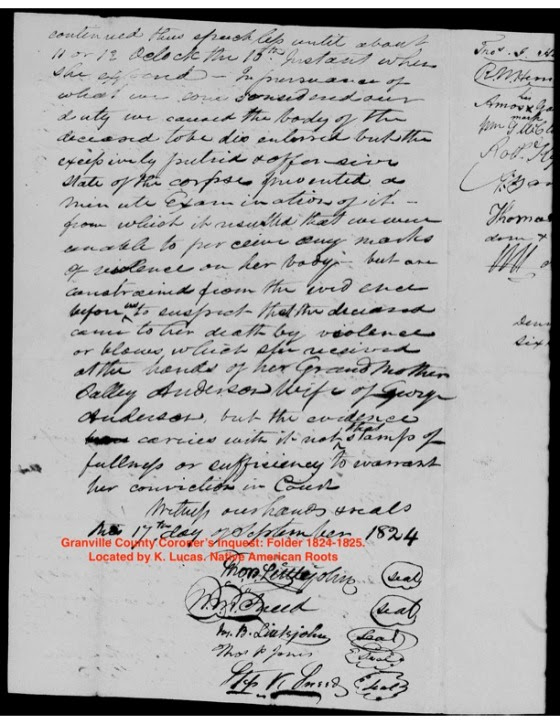 continued thus speechless until about
11 or 12 Oclock the 15th Instant when
she expired – In pursuance of
what we conceived our
duty we caused the body of the
deceased to be dis enterred but the
excessively putrid & offensive
state of the corpse prevented a
minute Examination of it –
from which it resulted that we were
unable to perceive any marks
of violence on her body – but are
constrained from the evidence
before us to suspect that the deceased
came to her death by violence
or blows which she received
at the hands of her Grand Mother
Salley Anderson Wife of George
Anderson, but the evidence
carries with it not that stamp of
fullness or sufficiency to warrant
her conviction in Court
Witness our hands & seals
17th day September 1824
Granville County Coroner's Inquest: Folder 1824-1825.
Located by K. Lucas. Native American Roots
Thos. Littlejohn (seal)
Sneed (seal)
M. B. Littlejohn (seal)
Thos Jones (Seal)
Sneed (Seal)
Thos. J. H
R. W. Hen
his
Amos x Go
mark
Wm
Robt.
Thomas